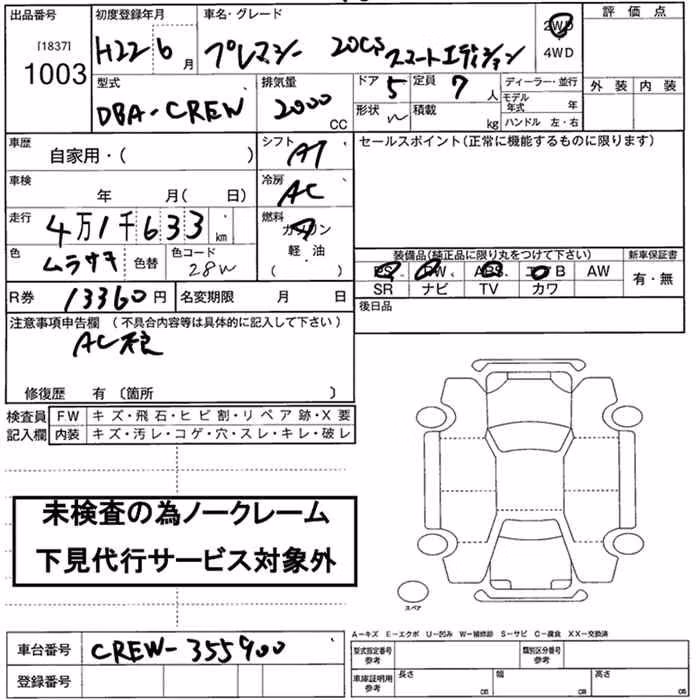 出品番号 初度登録年月 車名・グレード 2WD 評価点
[1837] H22 6月 プレマシー 20CS スマートエディション 4WD
1003
型式 排気量 ドア 5 定員 7人 ディーラー・並行 外装 内装
DBA-CREW 2000CC 形状 W 積載 kg モデル年式 年
ハンドル 左・右
車歴 自家用・( ) シフト AT セールスポイント(正常に機能するものに限ります)
車検 年 月( 日) 冷房 AC
走行 4万1千633km 燃料 ガソリン
軽・油
( )
色 ムラサキ 色替 色コード 28W
装備品(純正品に限り丸をつけて下さい) 新車保証書
PS PW ABS エアB AW 有・無
SR ナビ TV カワ
R券 13360円 名変期限 月 日
後日品
注意事項申告欄 (不具合内容等は具体的に記入して下さい)
AC不良
修復歴 有 〔箇所 〕
検査員 F.W キズ・飛石・ヒビ割・リペア跡・X要
記入欄 内装 キズ・汚レ・コゲ・穴・スレ・キレ・破レ
未検査の為ノークレーム
下見代行サービス対象外
スペア
A-キズ E-エクボ U-凹み W-補修跡 S-サビ C-腐食 XX-交換済
車台番号 CREW-355900 型式指定番号 参考 類別区分番号 参考
登録番号 車庫証明用 参考 長さ cm 幅 cm 高さ cm